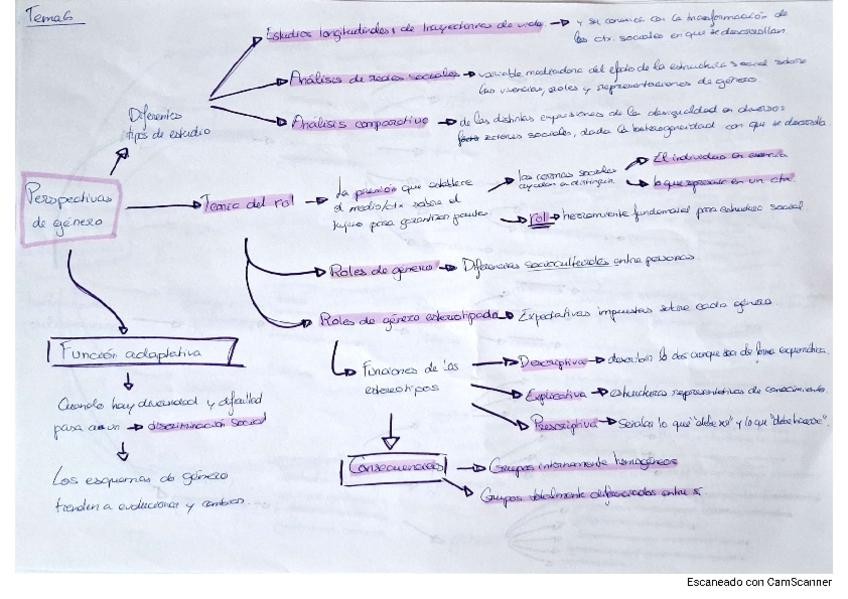 Tema 6
Estudios longitudinales de trayectorias de vida → y su conexión con la transformación de
los ctx. sociales en que se desarrollan.
Análisis de redes sociales → variable mediadora del efecto de la estructura social sobre
las vivencias, roles y representaciones de género.
Análisis comparativo → de las distintas expresiones de la desigualdad en diversos
sectores sociales, dada la heterogeneidad con que se desarrolla
Diferentes
tipos de estudio
Perspectivas
de género
Teoría del rol → La presión que establece
el medio/ctx sobre el
sujeto para garantizar
las normas sociales
ayudan a distinguir
El individuo en esencia
lo que representa en un ctx.
rol → herramienta fundamental para estructura social.
Roles de género → Diferencias socioculturales entre personas
Roles de género estereotipada → Expectativas impuestas sobre cada género
Función adaptativa
Cuando hay diversidad y dificultad
para → discriminación social
Los esquemas de género
tienden a evolucionar y cambiar.
Funciones de los
estereotipos
Descriptiva → describir lo dos aunque sea de forma esquemática.
Explicativa → estructuras representativas de conocimiento.
Prescriptiva → Señalar lo que "debe ser" y lo que "debe hacerse".
Consecuencias
Grupos internamente homogéneos
Grupos totalmente diferenciados entre sí.
Escaneado con CamScanner